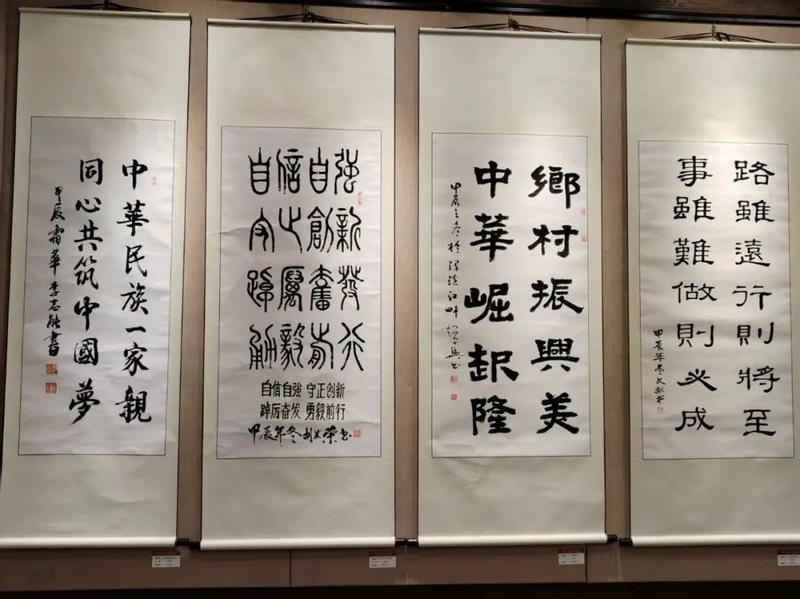 中華民族一家親
同心共筑中國夢
甲辰霜華李志能書
自信自強
守正創新
踔厲奮發
勇毅前行
自信自強 守正创新
踔厉奋发 勇毅前行
甲辰年冬荣书
鄉村振興美
中華崛起隆
甲辰之冬於江畔
路雖遠行則將至
事雖難做則必成
甲辰年冬文